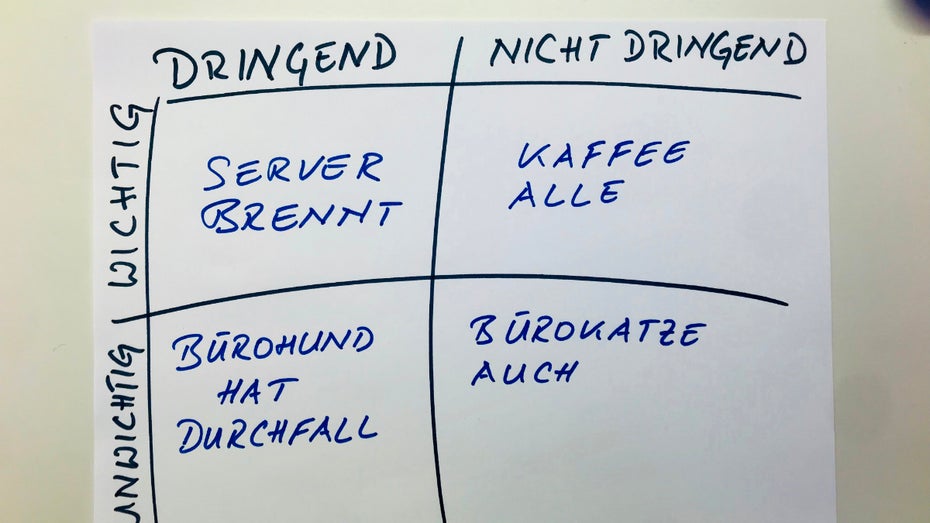 DRINGEND
NICHT DRINGEND
WICHTIG
SERVER
BRENNT
KAFFEE
ALLE
UNWICHTIG
BÜROHUND
HAT
DURCHFALL
BÜROKATZE
AUCH